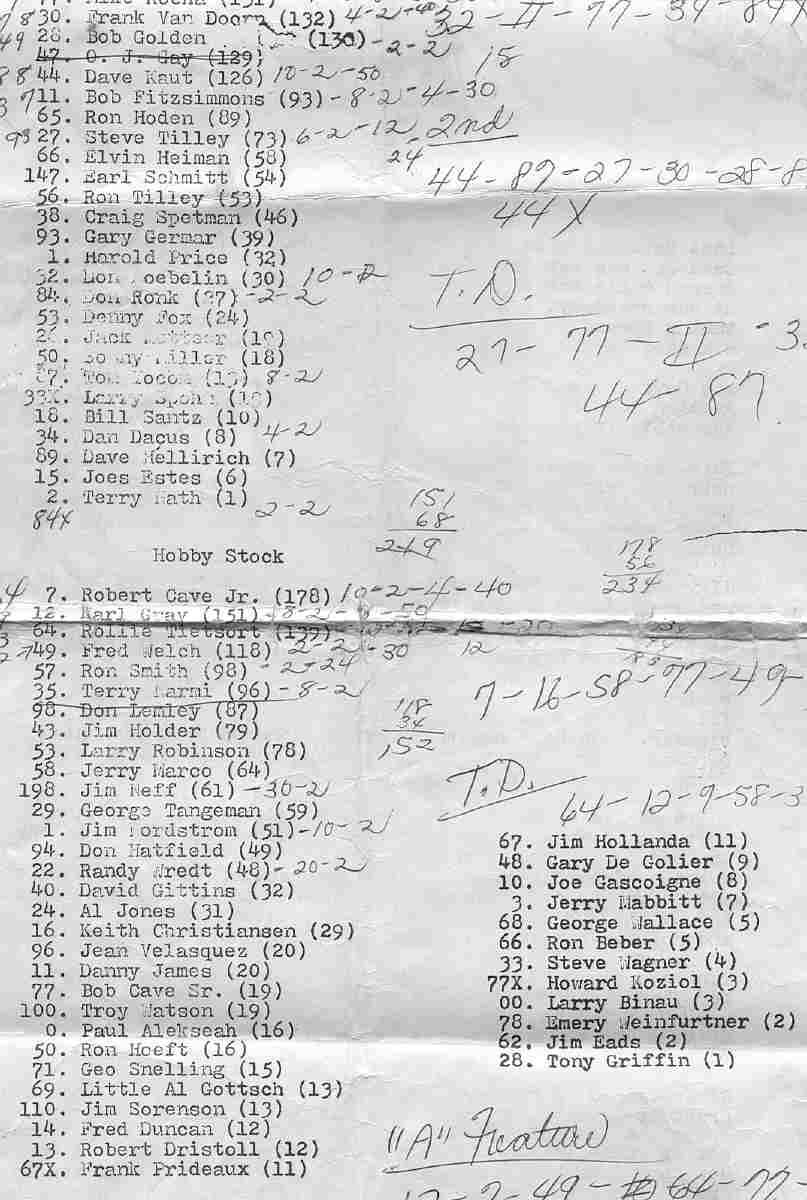 30. Frank Van Doorn (132) 4-2-40
32-II-77-34-84X
28. Bob Golden (130) -2-2
47. O. J. Gay (129)
15
44. Dave Kaut (126) 10-2-50
11. Bob Fitzsimmons (93) -8-2-4-30
65. Ron Hoden (89)
27. Steve Tilley (73) 6-2-12
2nd
66. Elvin Heiman (58)
24
147. Earl Schmitt (54)
44-87-27-30-28-8
56. Ron Tilley (53)
38. Craig Spetman (46)
44X
93. Gary Germar (39)
1. Harold Price (32)
32. Lon oebelin (30) 10-2
T.D.
84. Don Ronk (27) -2-2
53. Denny Fox (24)
27-77-II-3
Jack
50. iller (18)
87. Tom 8-2
44-87
33X. Larry Spohn
18. Bill Santz (10)
34. Dan Dacus (8) 4-2
89. Dave Hellirich (7)
15. Joes Estes (6)
2. Terry Nath (1)
84X 2-2
151
68
219
178
56
234
Hobby Stock
7. Robert Cave Jr. (178) 10-2-4-40
12. Karl Gray (151) -8-2- -50
64. Rollie Tietsort (139)
749. Fred Welch (118) 2-2-30
12
57. Ron Smith (98) -2-24
35. Terry Karmi (96) -8-2
7-16-58-77-49-
98. Don Lemley (87)
118
34
152
43. Jim Holder (79)
53. Larry Robinson (78)
58. Jerry Marco (64)
T.D.
198. Jim Neff (61) -30-2
64-12-9-58-3
29. George Tangeman (59)
1. Jim Nordstrom (51) -10-2
94. Don Hatfield (49)
22. Randy Wredt (48) -20-2
40. David Gittins (32)
24. Al Jones (31)
16. Keith Christiansen (29)
96. Jean Velasquez (20)
11. Danny James (20)
77. Bob Cave Sr. (19)
100. Troy Watson (19)
0. Paul Alekseah (16)
50. Ron Hoeft (16)
71. Geo Snelling (15)
69. Little Al Gottsch (13)
110. Jim Sorenson (13)
14. Fred Duncan (12)
13. Robert Dristoll (12)
67X. Frank Prideaux (11)
67. Jim Hollanda (11)
48. Gary De Golier (9)
10. Joe Gascoigne (8)
3. Jerry Mabbitt (7)
68. George Wallace (5)
66. Ron Beber (5)
33. Steve Wagner (4)
77X. Howard Koziol (3)
00. Larry Binau (3)
78. Emery Weinfurtner (2)
62. Jim Eads (2)
28. Tony Griffin (1)
"A" Feature
12-7-49- 64-77-